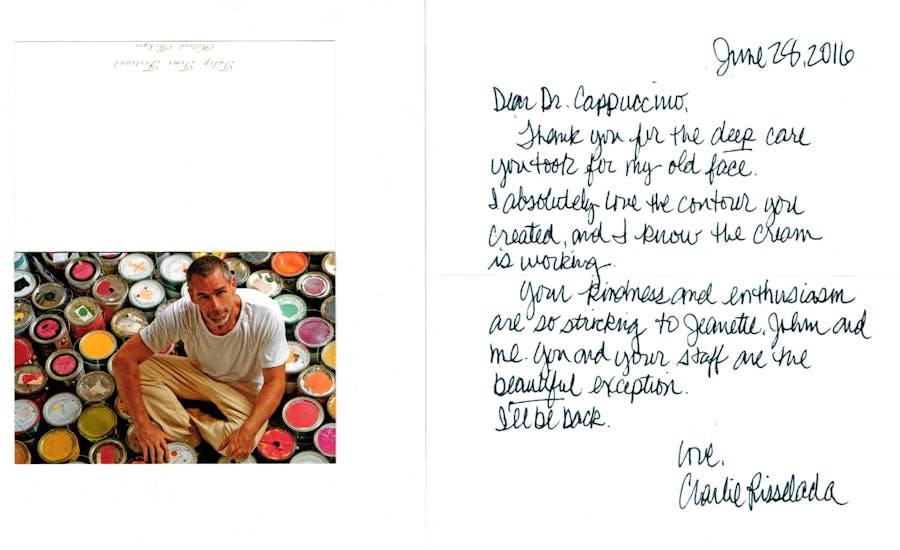 Tulip Time Festival
Holland, Michigan
June 28, 2016
Dear Dr. Cappuccino,
Thank you for the deep care
you took for my old face.
I absolutely love the contour you
created, and I know the cream
is working.
Your kindness and enthusiasm
are so stricking to Jeanette, John and
me. You and your staff are the
beautiful exception.
I'll be back.
Love,
Charlie Risselada